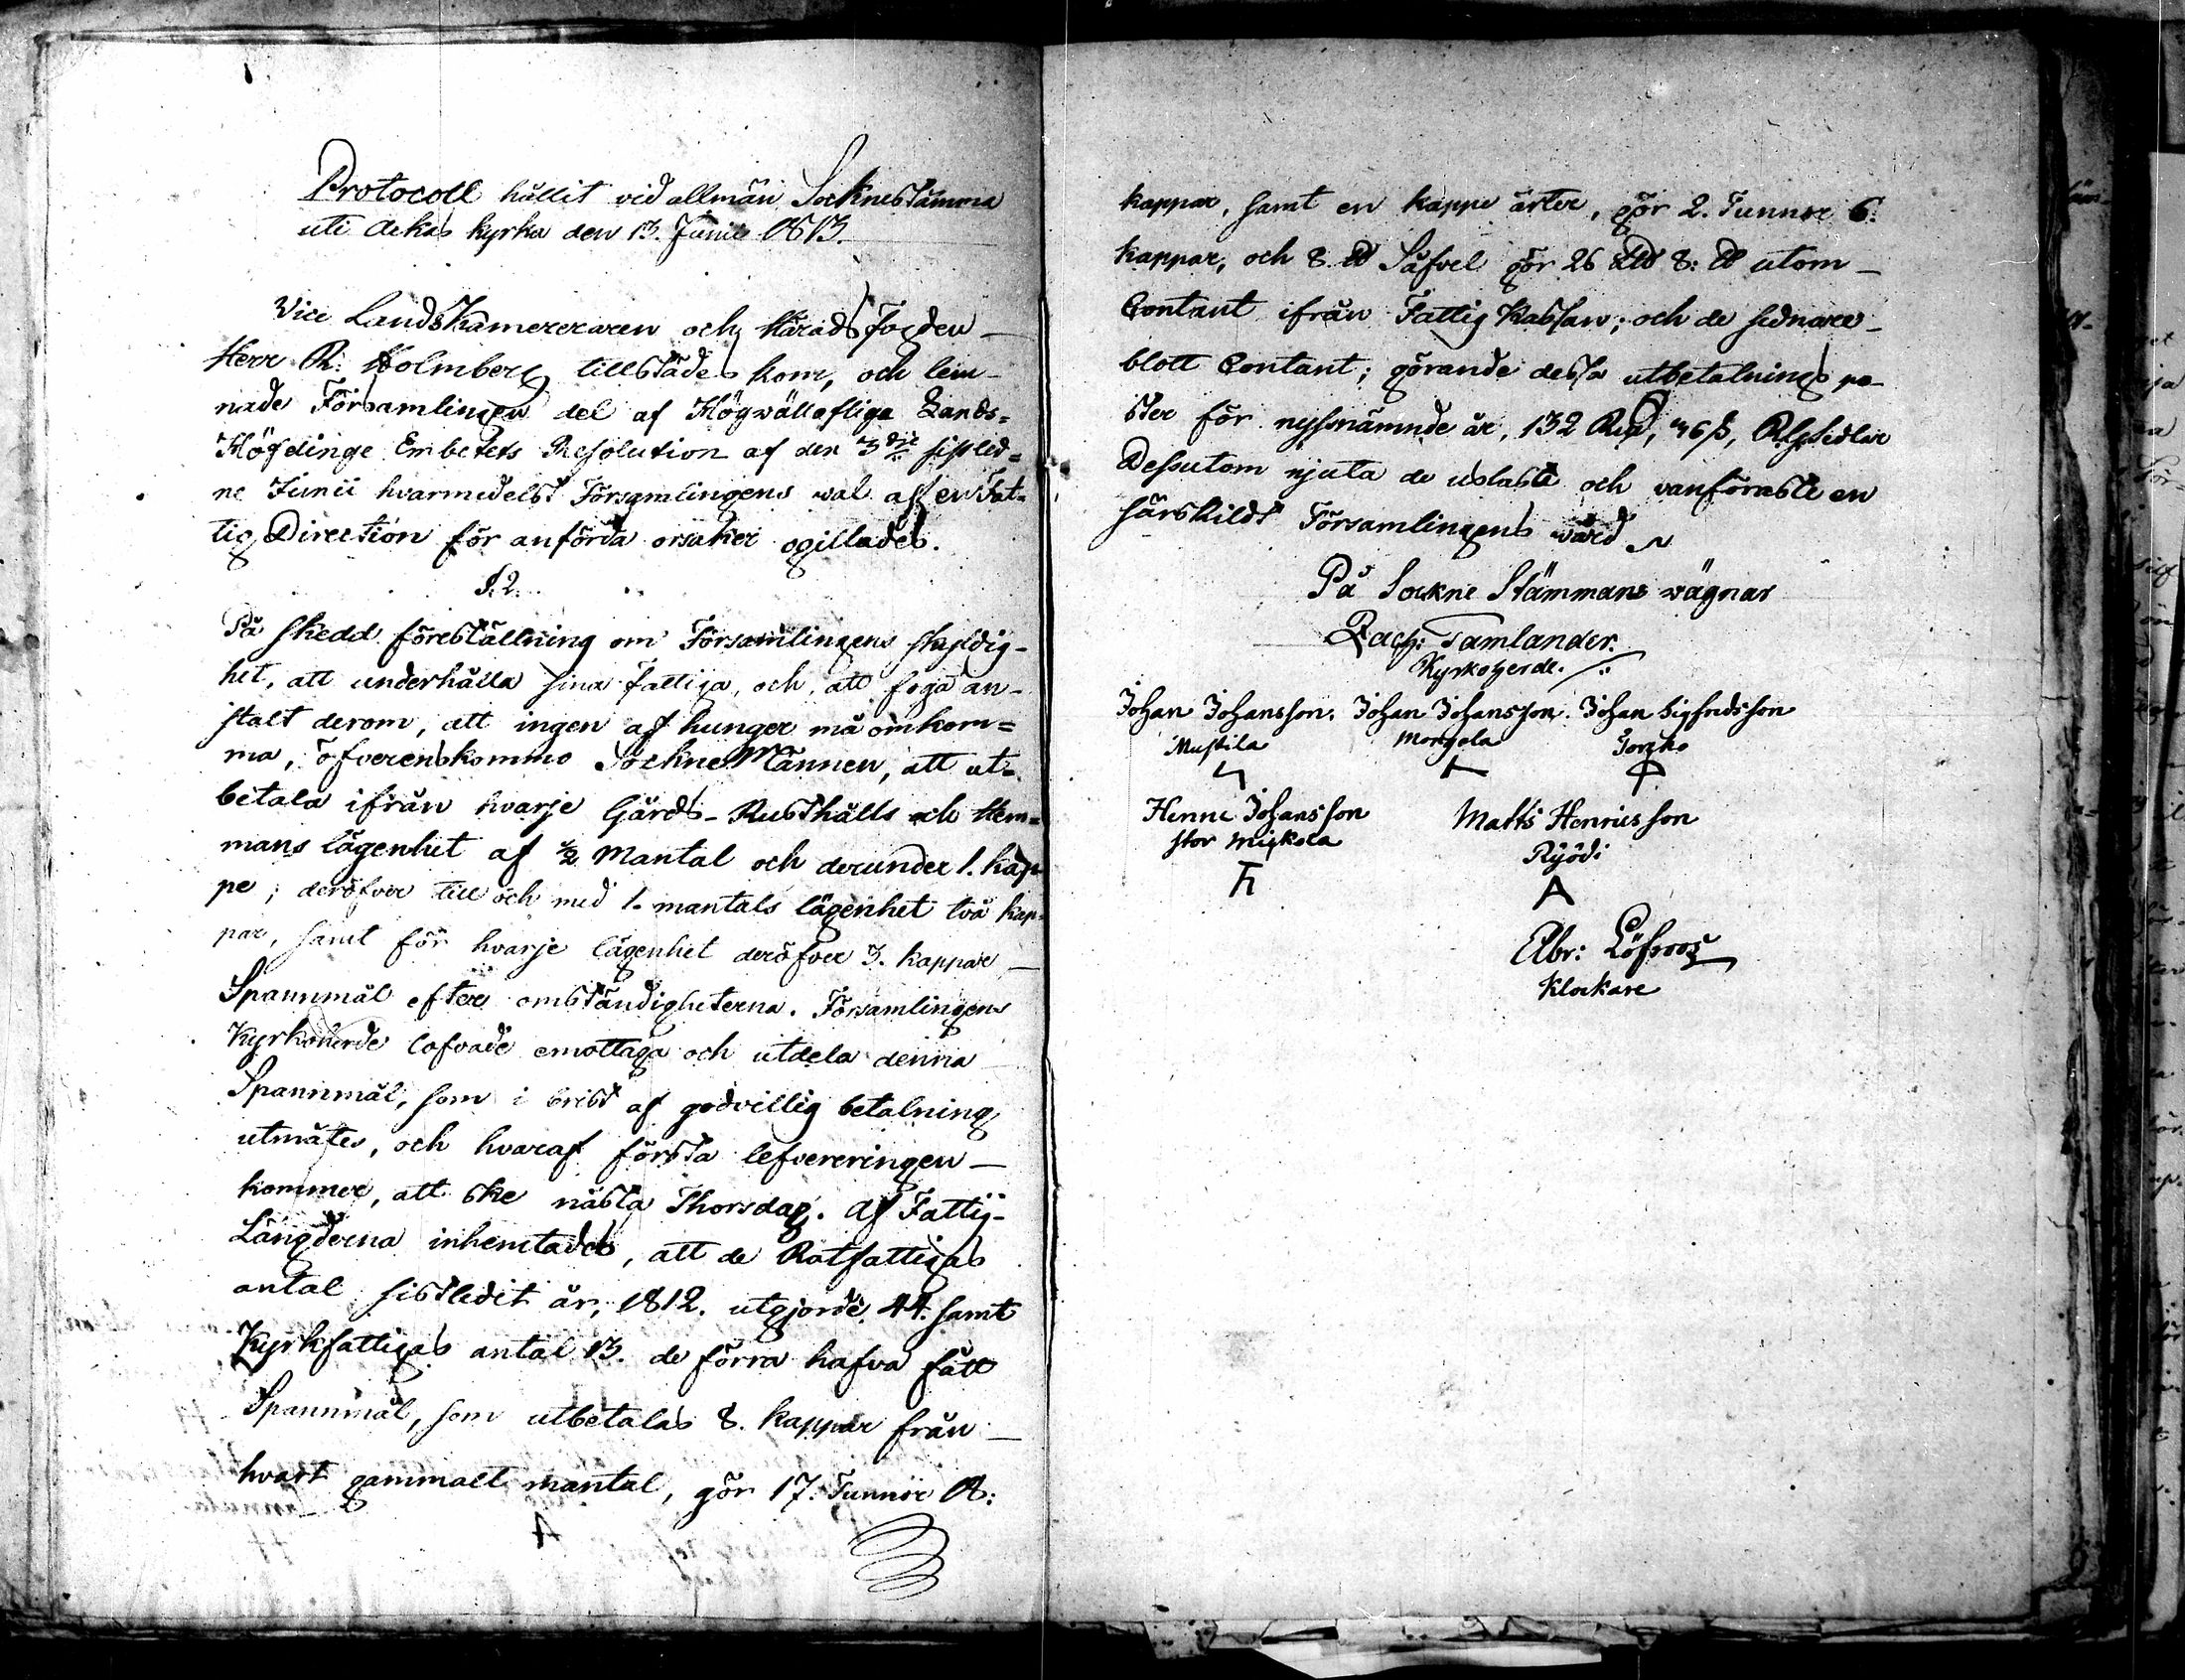 Protocoll hållit vid allmän Socknestämma
uti Ackas kyrka den 13. Junii 1813.
Vice LandsKamereraren och Häradsfogden
Herr R: Holmberg tillstädes kom, och lem-
nade Församlingen del af Högwällofliga Lands-
Höfdinge Embetets Resolution af den 3dje sistled-
ne Junii hvarmedelst Församlingens wal af en Fat-
tig Direction för anförda orsaker ogillades.
§.2.
På skedd föreställning om Församlingens skyldig-
het, att underhålla sina fattiga, och att foga an-
stalt derom, att ingen af hunger må omkom-
ma, öfverenskommo SockneMännen, att ut-
betala ifrån hvarje Gårds- Rusthålls och Hem-
mans lägenhet af 1/2 Mantal och derunder 1. kap-
pe; deröfver till och med 1. mantals lägenhet två kap-
par, samt för hvarje lägenhet deröfver 3. kappar
Spannmål efter omständigheterna. Församlingens
Kyrkoherde lofvade emottaga och utdela denna
Spannmål, som i brist af godvillig betalning
utmätes, och hvaraf första lefvereringen
kommer, att ske nästa Thorsdag. Af Fattig-
Längderna inhemtades, att de Rotfattigas
antal sistledit år, 1812. utgjorde 44. samt
Kyrkfattigas antal 13. de förra hafva fått
Spannmål, som utbetalas 8. kappar från
hvart gammalt mantal, gör 17. Tunnor 18:
kappar, samt en kappe ärter, gör 2. Tunnor 6.
kappar, och 8. ℔ Såfvel gör 26 L℔ 8: ℔ utom
Contant ifrån Fattig Kassan; och de sednare
blott Contant; görande dessa utbetalnings po-
ster för nyssnämnde år, 132 Rd, 46 ß, RgSedlar
Dessutom njuta de uslaste och vanföraste en
särskildt Församlingens wård
På Sockne Stämmans wägnar
Zach: Tamlander.
Kyrkoherde.
Johan Johansson. Johan Johansson. Johan Sigfridsson
Mustila Mongola
Henric Johansson Matts Henricsson
stor Miskola
Abr: Löfroos
Klockare